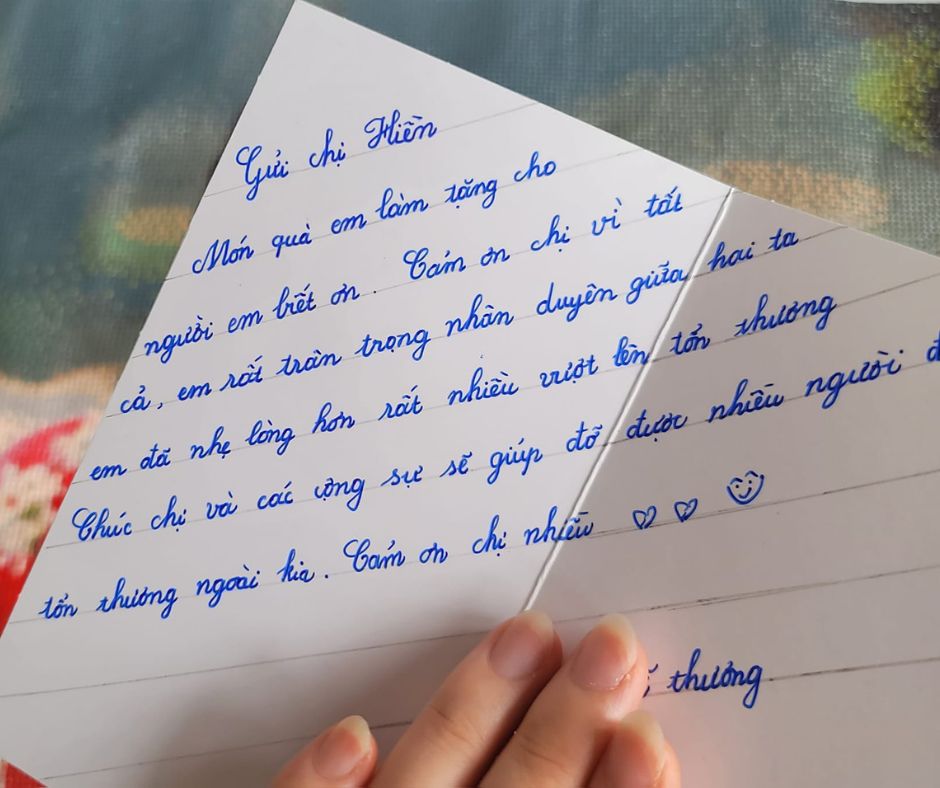 Gửi chị Hiền
Món quà em làm tặng cho
người em biết ơn. Cảm ơn chị vì tất
cả, em rất trân trọng nhân duyên giữa hai ta
em đã nhẹ lòng hơn rất nhiều vượt lên tổn thương
Chúc chị và các cộng sự sẽ giúp đỡ được nhiều người
tổn thương ngoài kia. Cảm ơn chị nhiều
thương